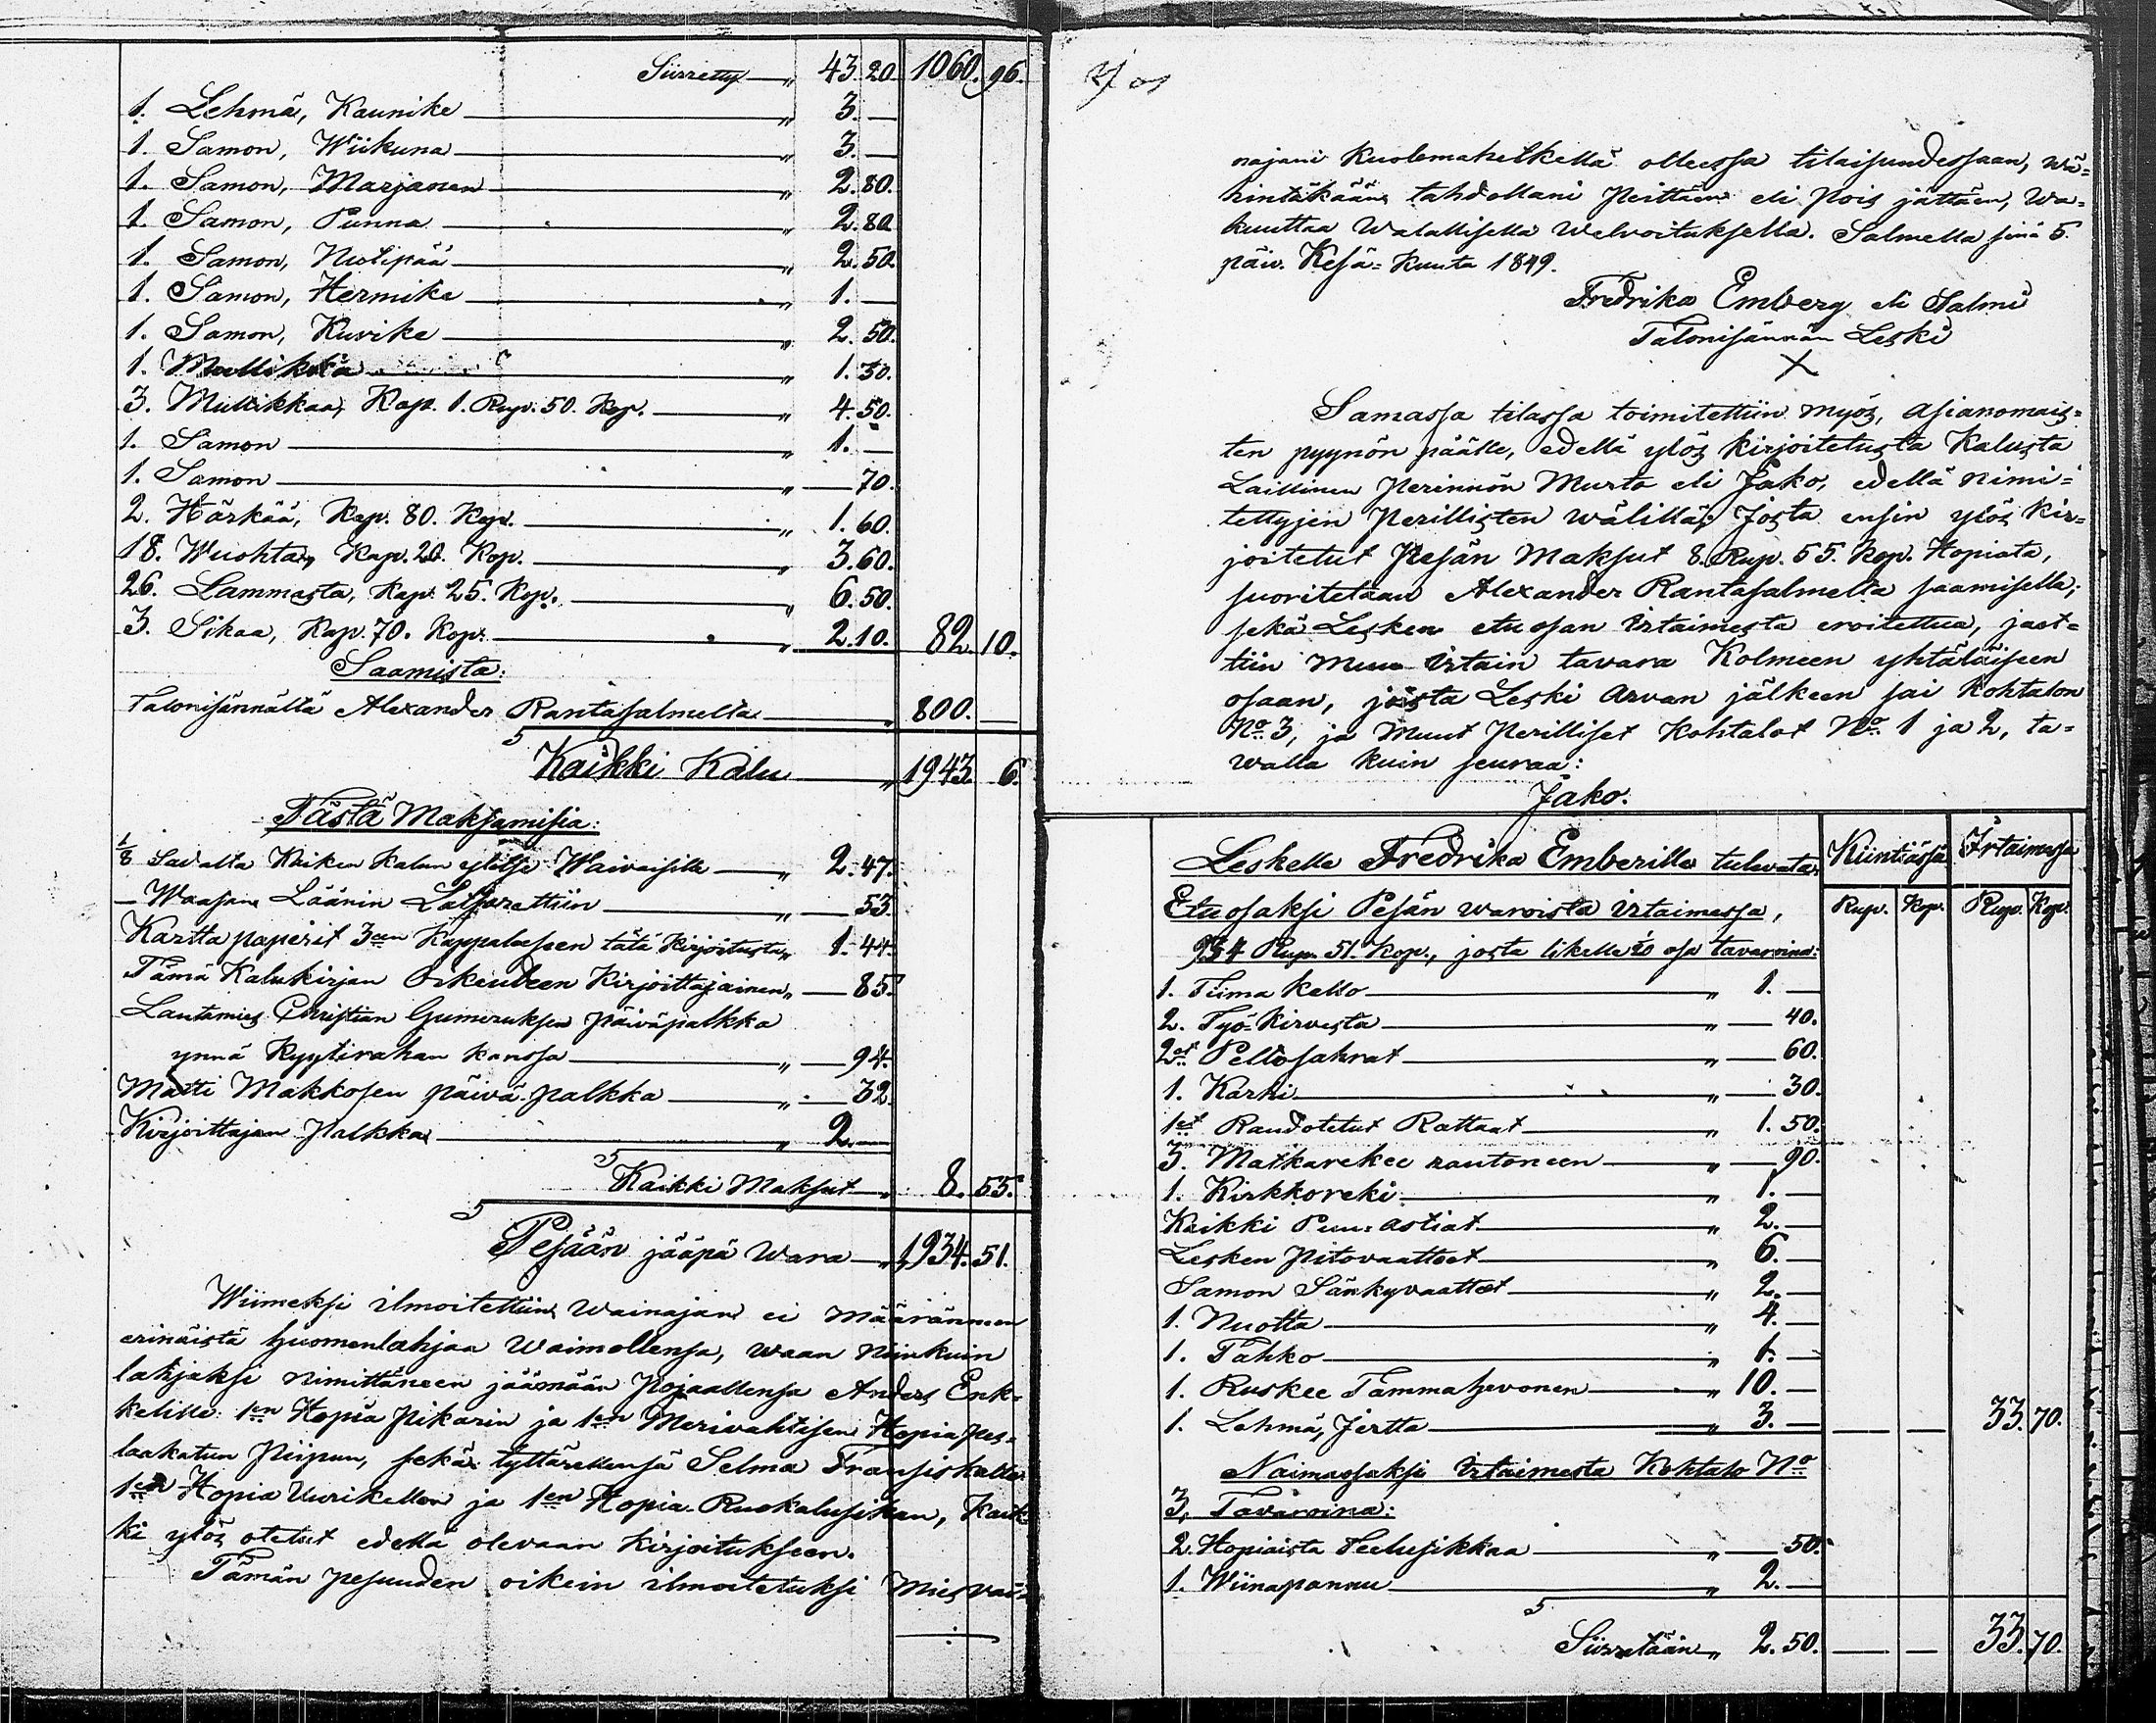 Siirretty — „ 43. 20. 1060. 96.
1. Lehmä, Kaunike — „ 3. —
1. Samon, Wiikuna — „ 3. —
1. Samon, Marjanen — „ 2. 80.
1. Samon, Punna — „ 2. 80.
1. Samon, Nutipää — „ 2. 50.
1. Samon, Hermike — „ 1. —
1. Samon, Kuvike — „ 2. 50.
1. Mullikka — „ 1. 50.
3. Mullikkaa, Kap. 1. Rup. 50. Kop. — „ 4. 50.
1. Samon — „ 1. —
1. Samon — „ — 70.
2. Härkää, Kap. 80. Kop. — „ 1. 60.
18. Wuohta, Kap. 20. Kop. — „ 3. 60.
26. Lammasta, Kap. 25. Kop. — „ 6. 50.
3. Sikaa, Kap. 70. Kop. — „ 2. 10. 82. 10.
Saamista:
Talonisännältä Alexander Rantasalmelta — „ 800. —
Kaikki Kalu — „ 1943. 6.
Tästä Maksamisia:
1/8 Sadalta Kaiken Kalun ylitse Waivaisille — „ 2. 47.
— Waasan Läänin Latsarettiin — „ — 53.
Kartta paperit 3een Kappaleseen tätä Kirjoitusta „ 1. 44.
Tämä Kalukirjan Oikeudeen Kirjoittajainen „ — 85.
Lautamies Christian Gumeruksen päiväpalkka
ynnä Kyytirahan kanssa — „ — 94.
Matti Makkosen päivä palkka — „ — 32.
Kirjoittajan Palkka — „ 2. —
Kaikki Maksut — „ 8. 55.
Pesään jääpä Wara — „ 1934. 51.
Wiimeksi ilmoitettiin Wainajan ei määränneen
erinäistä huomenlahjaa Waimollensa, waan niinkuin
lahjaksi nimittäneen jäämään Pojaallensa Anders Enk-
kelille 1en Hopia Pikarin ja 1en Merivahtisen Hopia pes-
laakatun Piipun, sekä tyttärellensä Selma Fransiskalle
1en Hopia Uurikellon ja 1en Hopia Ruokalusikan, Kaik-
ki ylös otetut edellä olevaan Kirjoitukseen.
Tämän pesuuden oikein ilmoitetuksi Mies vai-
najani Kuolemahetkellä olleessa tilaisuudessaan, wä-
hintäkään tahdollani Peittäen eli Pois jättäen, Wa-
kuuttaa Walallisella Welvoituksella. Salmella sinä 5.
päiv. Kesä-Kuuta 1849.
Fredrika Emberg eli Salmi
Talonisännän Leski
X
Samassa tilassa toimitettiin myös, asianomais-
ten pyynön päälle, edellä ylös kirjoitetusta Kalusta
Laillinen Perinnön Murto eli Jako, edellä nimi-
tettyjen Perillisten wälillä; Josta ensin ylös kir-
joitetut Pesän Maksut 8. Rup. 55. Kop. Hopiata,
suoritetaan Alexander Rantasalmelta saamisella;
sekä Lesken etuosan Irtaimesta eroitettua, jaet-
tiin Muu Irtain tavara Kolmeen yhtäläiseen
osaan, joista Leski Arvan jälkeen sai Kohtalon
No. 3, ja Muut Perilliset Kohtalot No. 1 ja 2, ta-
walla kuin seuraa:
Jako.
Leskelle Fredrika Emberille tulevata Kiintiässä Irtaimessa
Etuosaksi Pesän waroista Irtaimessa, Rup. Kop. Rup. Kop.
934 Rup. 51. Kop., josta likelle 1/20 osa tavaroina:
1. Tiima kello — „ 1. —
2. Työ-Kirvesta — „ — 40.
2et Peltosahrat — „ — 60.
1. Karhi — „ — 30.
1et Raudotetut Rattaat — „ 1. 50.
3. Matkarekee rautoneen — „ — 90.
1. Kirkkoreki — „ 1. —
Kaikki Puu-astiat — „ 2. —
Lesken Pitovaatteet — „ 6. —
Samon Sänkyvaatteet — „ 2. —
1. Nuotta — „ 4. —
1. Tahko — „ 1. —
1. Ruskee Tammahevonen — „ 10. —
1. Lehmä, Jertta — „ 3. — — — 33. 70.
Naimaosaksi Irtaimesta Kohtalo No
3, Tavaroina:
2. Hopiaista Teelusikkaa — „ — 50.
1. Wiinapannu — „ 2. —
Siirretään „ 2. 50. — — 33. 70.